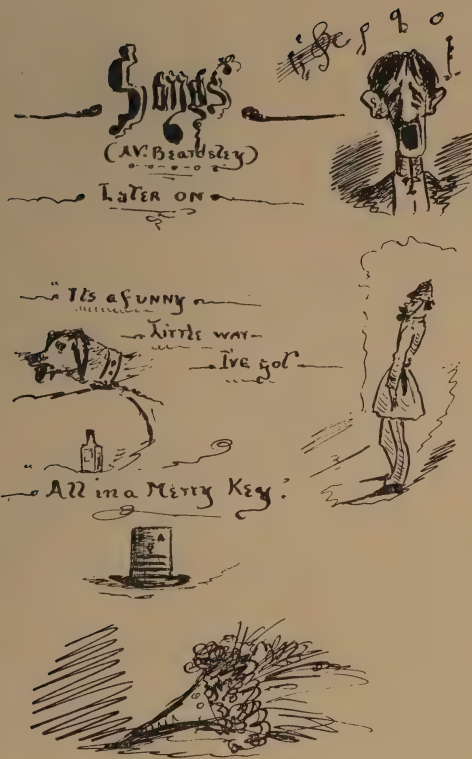 Songs
(A.V. Beardsley)
LaTER ON
"ITs a fUNNY
LiTTlE way
I'vE goT
"All in a Merry Key."